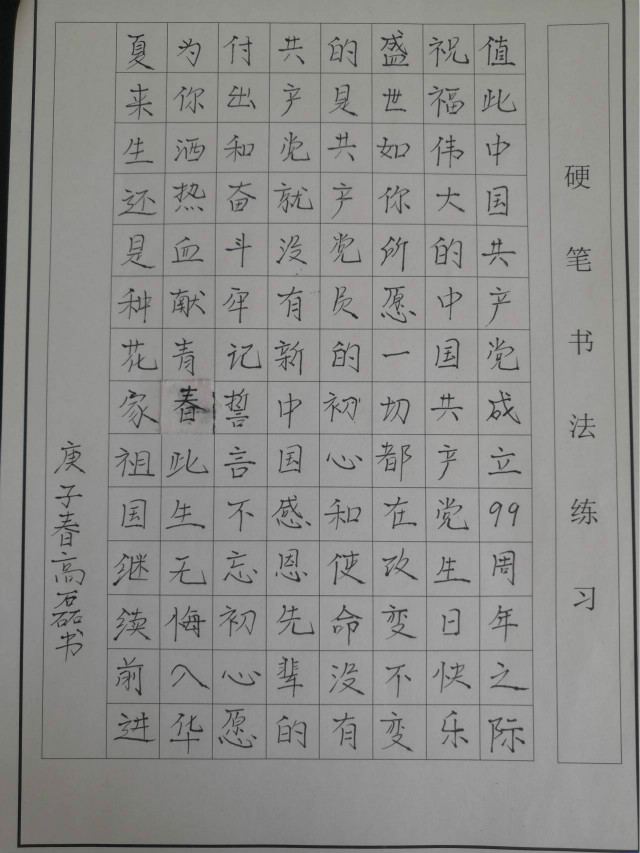 硬笔书法练习
值此中国共产党成立99周年之际
祝福伟大的中国共产党生日快乐
盛世如你所愿一切都在改变不变
的是共产党员的初心和使命没有
共产党就没有新中国感恩先辈的
付出和奋斗牢记誓言不忘初心愿
为你洒热血献青春此生无悔入华
夏来生还是种花家祖国继续前进
庚子春高磊书